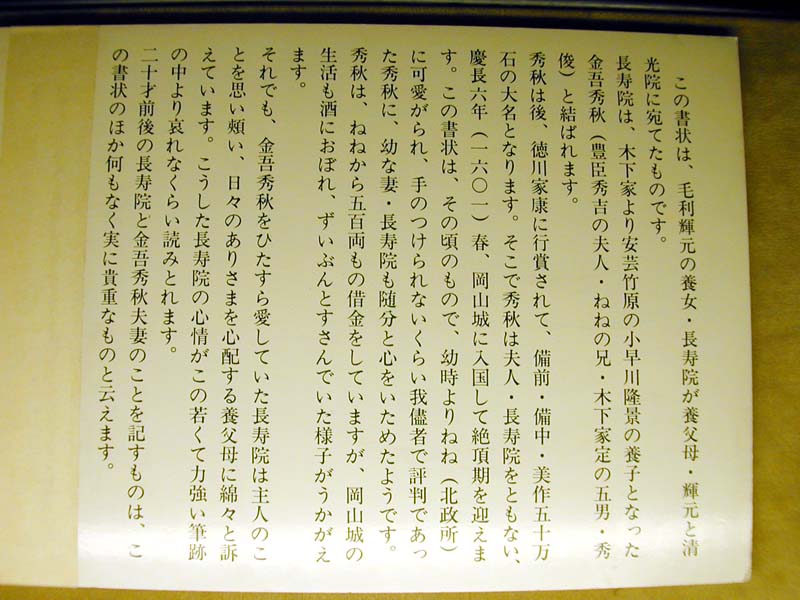 この書状は、毛利輝元の養女・長寿院が養父母・輝元と清
光院に宛てたものです。
長寿院は、木下家より安芸竹原の小早川隆景の養子となった
金吾秀秋（豊臣秀吉の夫人・ねねの兄・木下家定の五男・秀
俊）と結ばれます。
秀秋は後、徳川家康に行賞されて、備前・備中・美作五十万
石の大名となります。そこで秀秋は夫人・長寿院をともない、
慶長六年（一六〇一）春、岡山城に入国して絶頂期を迎えま
す。この書状は、その頃のもので、幼時よりねね（北政所）
に可愛がられ、手のつけられないくらい我儘者で評判であっ
た秀秋に、幼な妻・長寿院も随分と心をいためたようです。
秀秋は、ねねから五百両もの借金をしていますが、岡山城の
生活も酒におぼれ、ずいぶんとすさんでいた様子がうかがえ
ます。
それでも、金吾秀秋をひたすら愛していた長寿院は主人のこ
とを思い頬い、日々のありさまを心配する養父母に綿々と訴
えています。こうした長寿院の心情がこの若くて力強い筆跡
の中より哀れなくらい読みとれます。
二十才前後の長寿院と金吾秀秋夫妻のことを記すものは、こ
の書状のほか何もなく実に貴重なものと云えます。